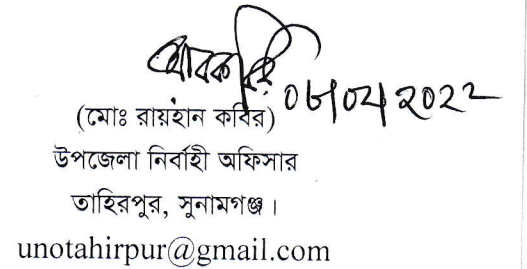 (মোঃ রায়হান কবির)
উপজেলা নির্বাহী অফিসার
তাহিরপুর, সুনামগঞ্জ।
unotahirpur@gmail.com